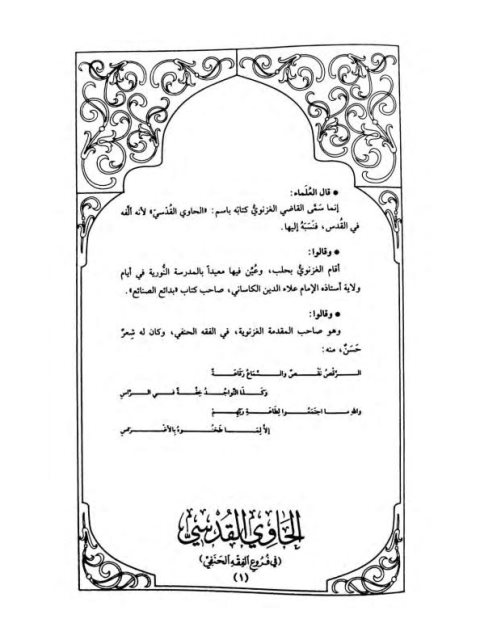 ● قال العُلَماء:
إنما سَمَّى القاضي الغزنويُّ كتابَه باسم: «الحاوي القُدْسيّ» لأنه ألَّفه
في القُدس، فنَسَبَهُ إليها.
● وقالوا:
أقام الغزنويُّ بحلب، وعُيِّن فيها معيداً بالمدرسة النُّورية في أيام
ولاية أستاذه الإمام علاء الدين الكاساني، صاحب كتاب «بدائع الصنائع».
● وقالوا:
وهو صاحب المقدمة الغزنوية، في الفقه الحنفي، وكان له شِعرٌ
حَسَنٌ، منه:
الرَّقْصُ نَقْصٌ والسَّمَاعُ رَقَاعَةٌ
وَكَذَا التَّوَاجُدُ خِفَّةٌ في الرَّاسِ
واللهِ ما اجتَمَعُوا لِطَاعَةِ رَبِّهِمْ
إلاَّ لِمَا طَحَنُوهُ بالأضْرَاسِ
الحَاوِي القُدْسِيّ
(في فُرُوعِ الفِقْهِ الحَنَفِيّ)
(١)